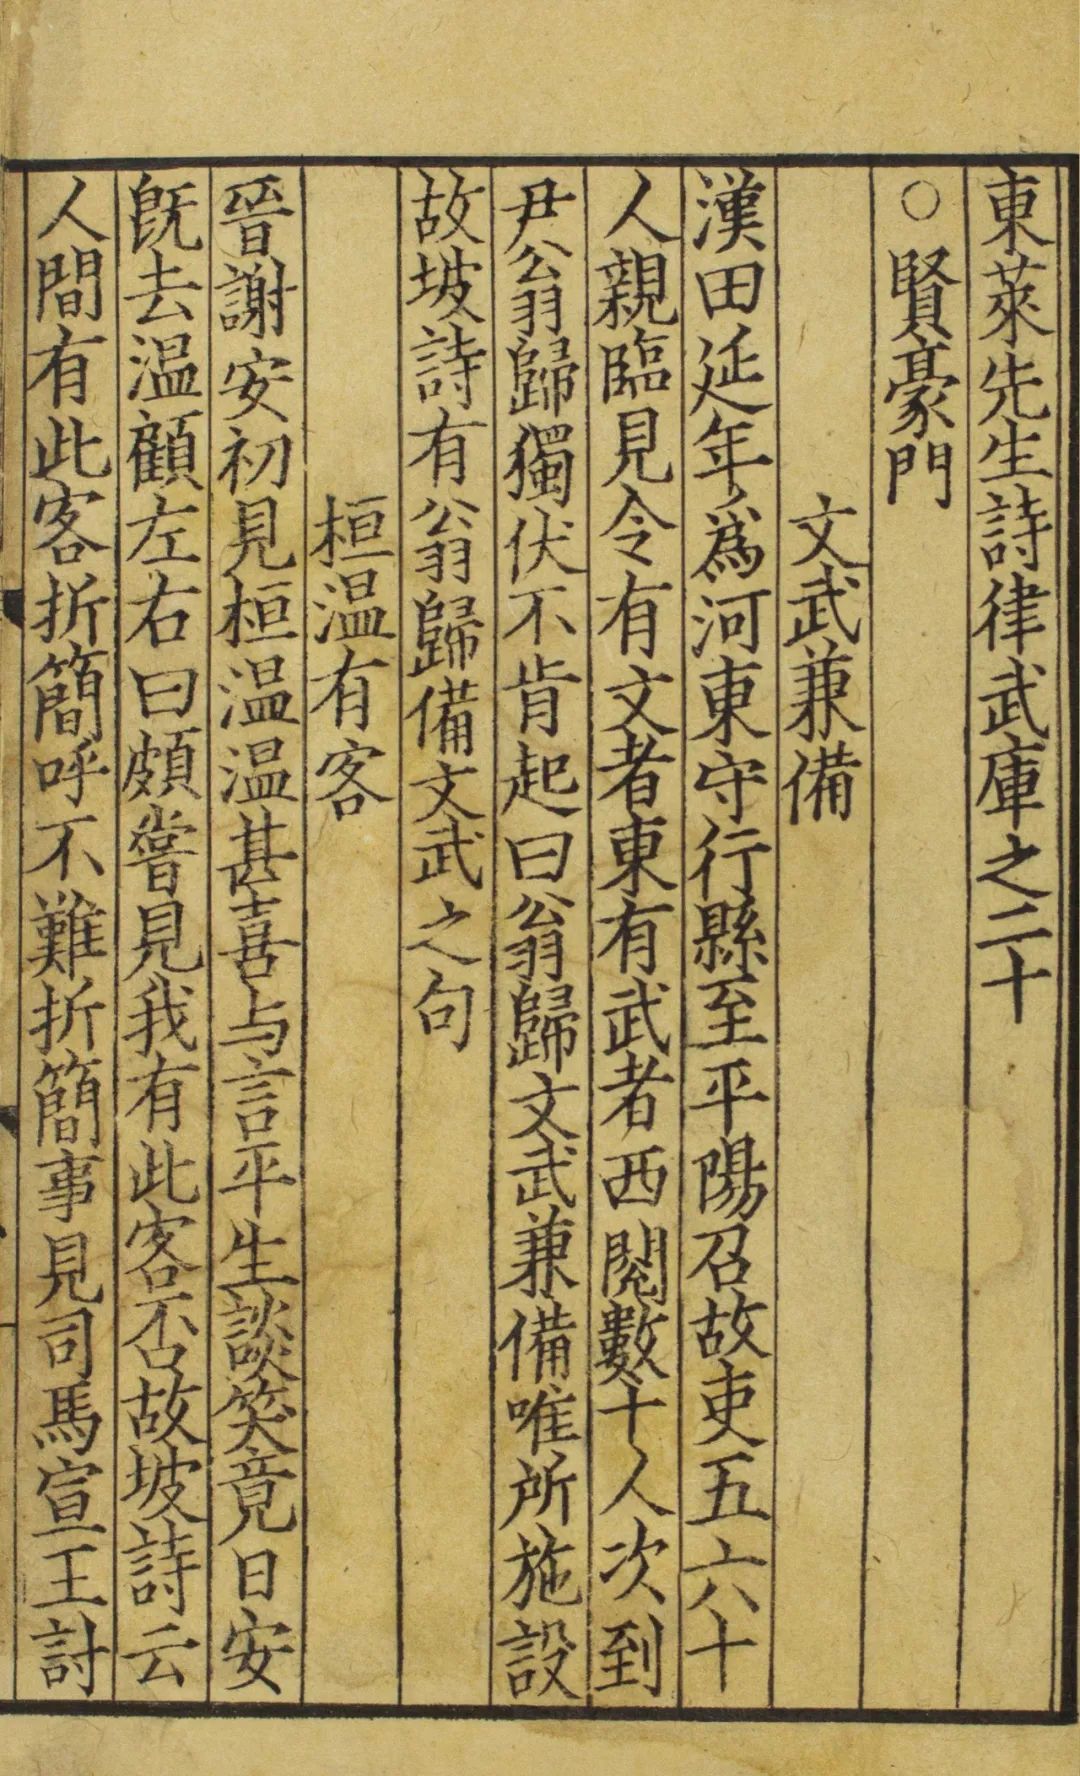 東萊先生詩律武庫之二十
○賢豪門
文武兼備
漢田延年為河東守行縣至平陽召故吏五六十
人親臨見令有文者東有武者西閱數十人次到
尹翁歸獨伏不肯起曰翁歸文武兼備唯所施設
故坡詩有翁歸備文武之句
桓温有客
晉謝安初見桓温温甚喜与言平生談笑竟日安
既去温顧左右曰頗嘗見我有此客否故坡詩云
人間有此客折簡呼不難折簡事見司馬宣王討